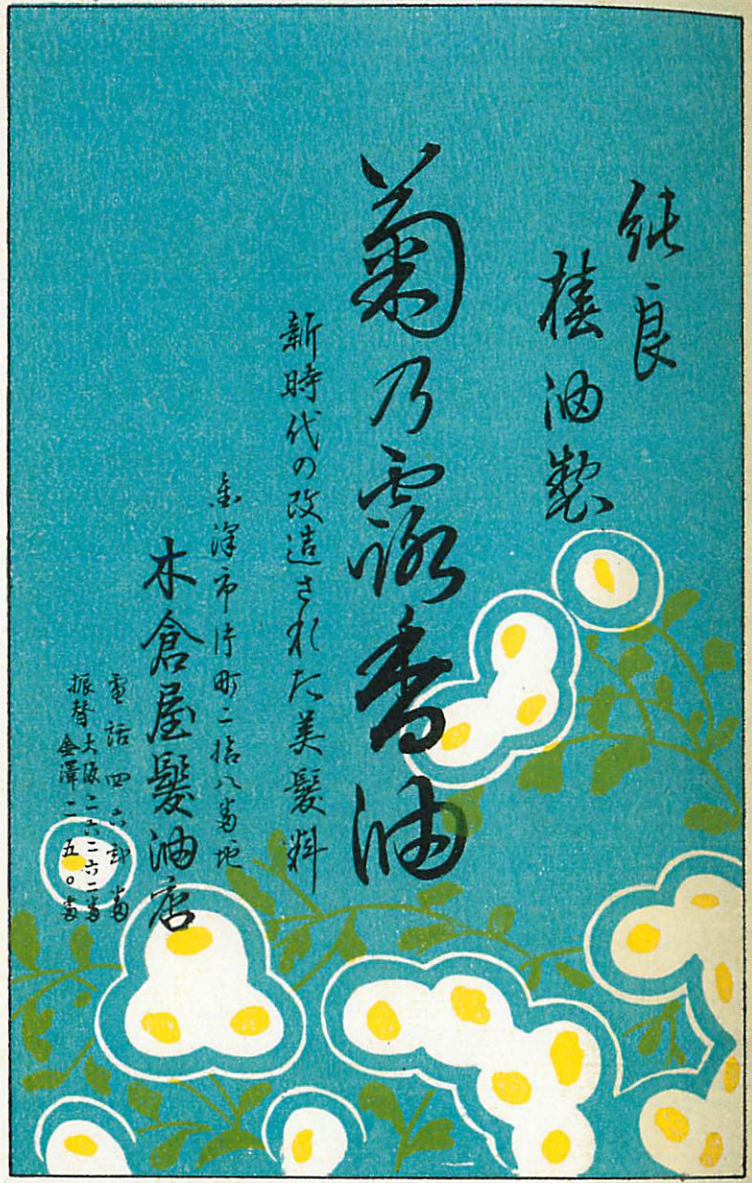 純良
椿油製
菊乃露香油
新時代の改造された美髪料
金澤市片町二拾八番地
木倉屋髪油店
電話四六弐番
振替大阪二六二六二番
金澤二五〇番